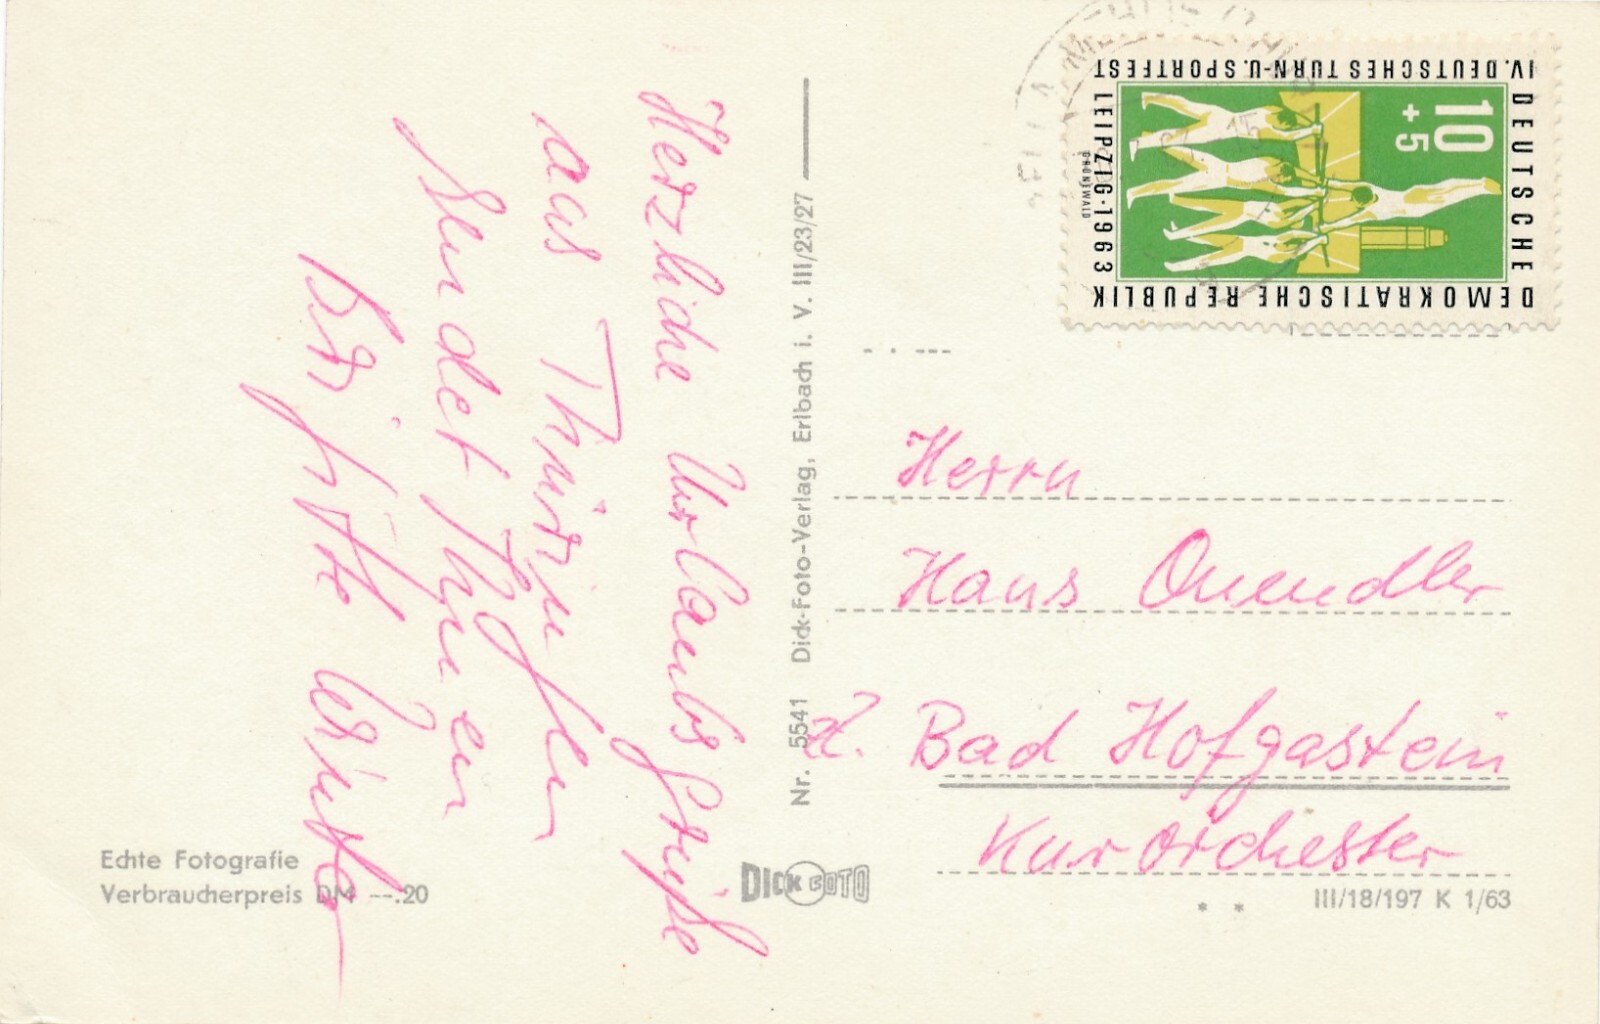 Herzliche Urlaubsgrüße
aus Thüringen
sendet Ihnen
Brigitte
Nr. 5541 Dick-Foto-Verlag, Erlbach i. V. III/23/27
IV. DEUTSCHES TURN-U. SPORTFEST
LEIPZIG·1963
DEUTSCHE
DEMOKRATISCHE REPUBLIK
10
+5
15
Herrn
Hans Quendler
Z. Bad Hofgastein
Kurorchester
Echte Fotografie
Verbraucherpreis DM --.20
DICK FOTO
III/18/197 K 1/63